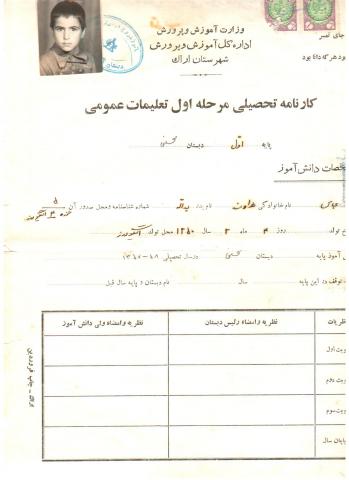 جای تمبر
وزارت آموزش و پرورش
اداره کل آموزش و پرورش
شهرستان اراک
بود هر که دانا بود
کارنامه تحصیلی مرحله اول تعلیمات عمومی
پایه اول دبستان
مشخصات دانش آموز
عباس نام خانوادگی هدایت نام پدر یداله شماره شناسنامه و محل صدور آن ۵
تولد روز ۴ ماه ۲ سال ۱۳۴۰ محل تولد
آموز پایه دبستان در سال تحصیلی ۴۸-۱۳۴۷
توقف در این پایه سال نام دبستان و پایه سال قبل
نظریات نظریه و امضاء رئیس دبستان نظریه و امضاء ولی دانش آموز
نوبت اول
نوبت دوم
نوبت سوم
پایان سال
اراک - چاپ فروردین